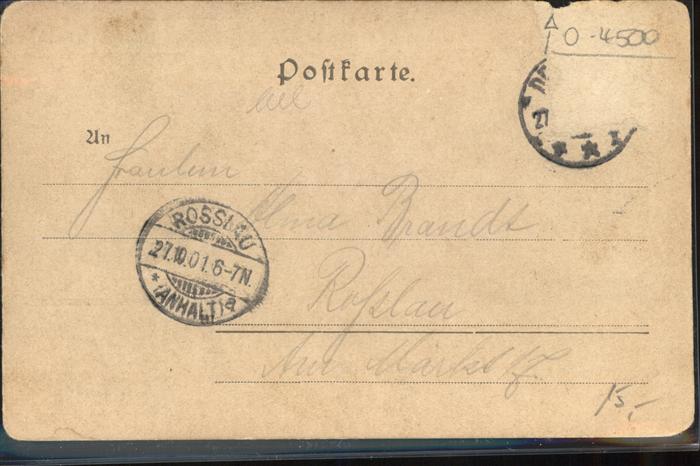 O-4500
Postkarte.
An
Fräulein
Alma Brandt
Roßlau
Am Markt
ROSSLAU
27.10.01.6-7N.
* (ANHALT) a
27
15,-